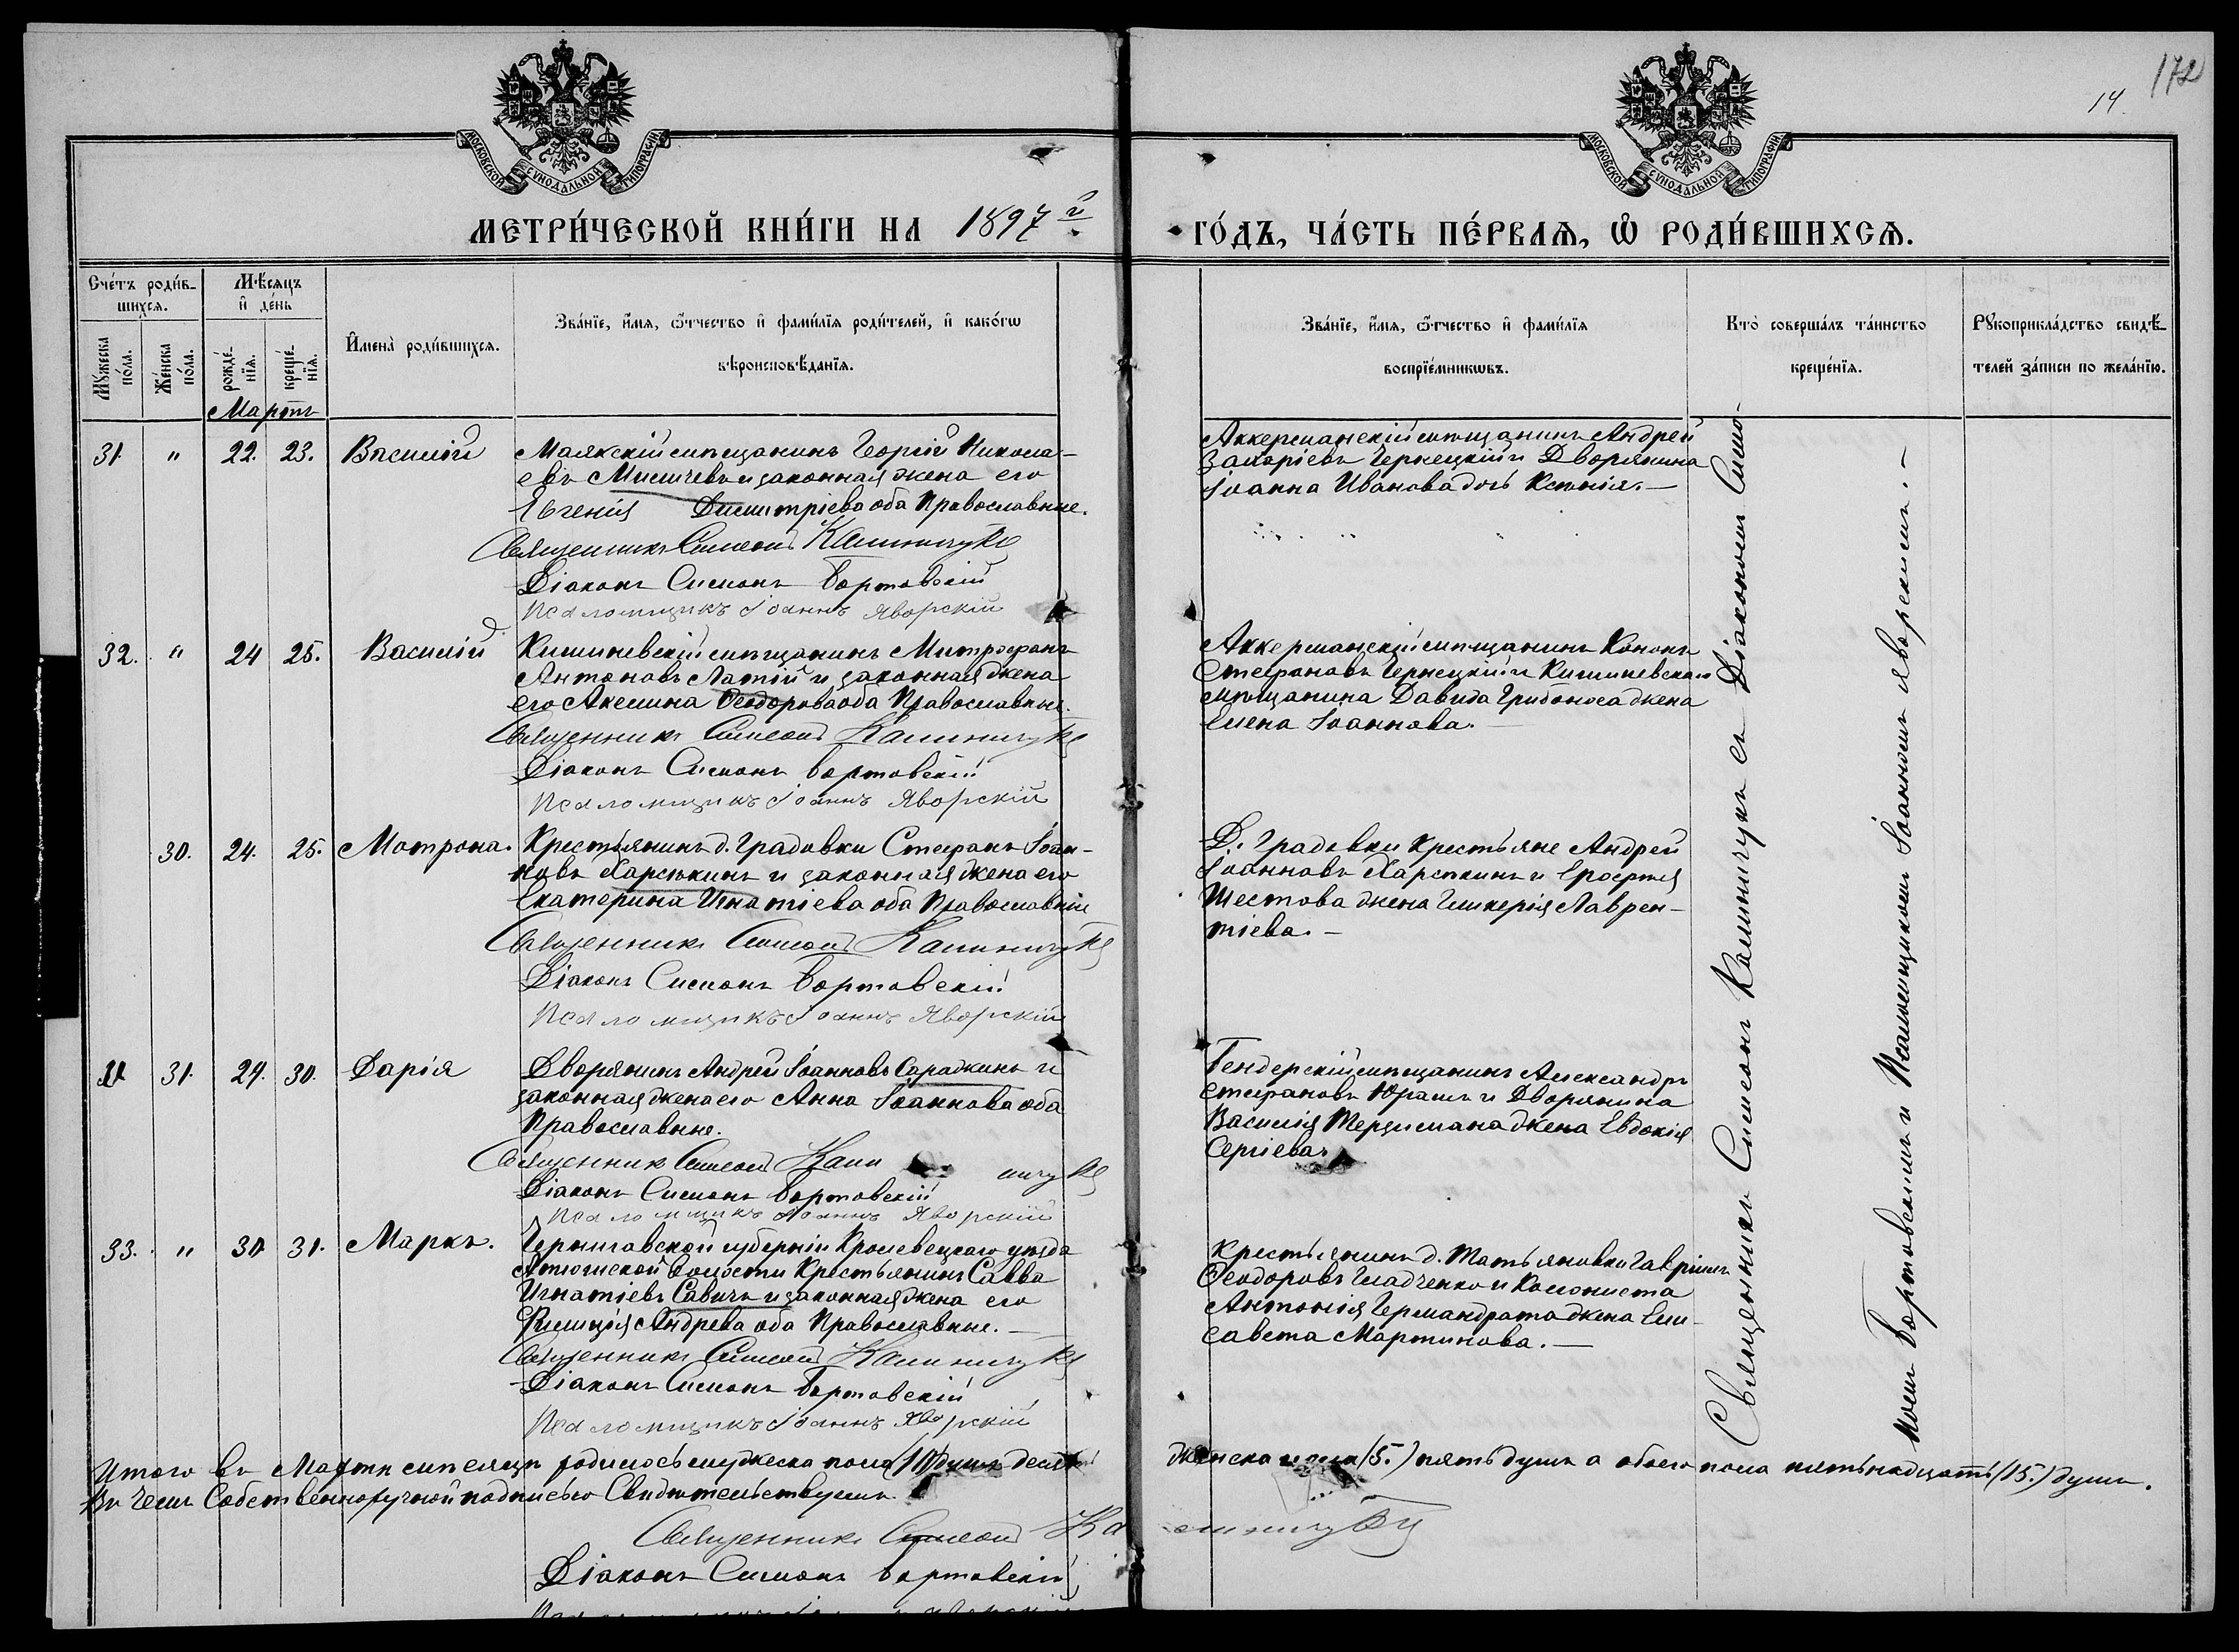 172
14
МОСКОВСКОЙ СѴНОДАЛЬНОЙ ТИПОГРАФІИ
МОСКОВСКОЙ СѴНОДАЛЬНОЙ ТИПОГРАФІИ
МЕТРИ́ЧЕСКОЙ КНИ́ГИ НА 1897й
ГО́ДЪ, ЧА́СТЬ ПЕ́РВАѦ, Ѡ РОДИ́ВШИХСѦ.
Сче́тъ роди́в-
шихся.
Му́жеска по́ла.
Же́нска по́ла.
Мѣ́сяцъ
и҆ де́нь
рожде́-нїя.
креще́-нїя.
И҆мена̀ роди́вшихся.
Зва́нїе, и҆́мя, ѻ҆́тчество и҆ фами́лїя роди́телей, и҆ како́гѡ
вѣроисповѣ́данїя.
Зва́нїе, и҆́мя, ѻ҆́тчество и҆ фами́лїя
воспрїе́мникѡвъ.
Кто̀ соверша́лъ та́инство
креще́нїя.
Рꙋкоприкла́дство свидѣ́-
телей за́писи по жела́нїю.
Мартъ
31. " 22. 23. Василій
Маякскій мѣщанинъ Георгій Никола-
евъ и законная жена его
Евгенія Димитріева оба Православные.
Священникъ Симеонъ Калинчукъ
Діаконъ Симонъ Бортовскій
Псаломщикъ Іоаннъ Яворскій
Аккерманскій мѣщанинъ Андрей
Захаріевъ Чернецкій и Дворянина
Іоанна Иванова дочь Ксенія.—
32. " 24 25. Василій
Кишиневскій мѣщанинъ Митрофанъ
Антоновъ Латій и законная жена
его Акелина Ѳеодорова оба Православные.
Священникъ Симеонъ Калинчукъ
Діаконъ Симонъ Бортовскій
Псаломщикъ Іоаннъ Яворскій
Аккерманскій мѣщанинъ Кононъ
Стефановъ Чернецкій и Кишиневскаго
мѣщанина Давида Грибоноса жена
Елена Іоаннова.—
30. 24. 25. Матрона.
Крестьянинъ д. Градовки Стефанъ Іоан-
новъ и законная жена его
Екатерина Игнатіева оба Православные
Священникъ Симеонъ Калинчукъ
Діаконъ Симонъ Бортовскій
Псаломщикъ Іоаннъ Яворскій
Д. Градовки крестьяне Андрей
Іоанновъ и Ерофея
Шестова жена Гликерія Лаврен-
тіева.—
31. 24. 30. Дарія
Дворянинъ Андрей Іоанновъ Сараджинъ и
законная жена его Анна Іоаннова оба
Православные.
Священникъ Симеонъ Калинчукъ
Діаконъ Симонъ Бортовскій
Псаломщикъ Іоаннъ Яворскій
Бендерскій мѣщанинъ Александръ
Стефановъ Юрашъ и Дворянина
Василія жена Евдокія
Сергіева.
33. " 30 31. Маркъ.
Черниговской губерніи Кролевецкаго уѣзда
волости Крестьянинъ Савва
Игнатіевъ Савичъ и законная жена его
Андрева оба Православные.—
Священникъ Симеонъ Калинчукъ
Діаконъ Симонъ Бортовскій
Псаломщикъ Іоаннъ Яворскій
Крестьянинъ д. Татьяновки Гавріилъ
Ѳеодоровъ Гладченко и Колониста
Антонія жена Ели-
савета Мартинова.—
Священникъ Симеонъ Калинчукъ съ Діакономъ Симо-
номъ Бортовскимъ и Псаломщикомъ Іоанномъ Яворскимъ.—
Итого въ Мартѣ мѣсяцѣ родилось мужеска пола (10) душъ десять женска пола (5.) пять душъ а обоего пола пятьнадцать (15.) душъ.
Въ чемъ Собственноручной подписью Свидѣтельствуемъ.
Священникъ Симеонъ Калинчукъ
Діаконъ Симонъ Бортовскій